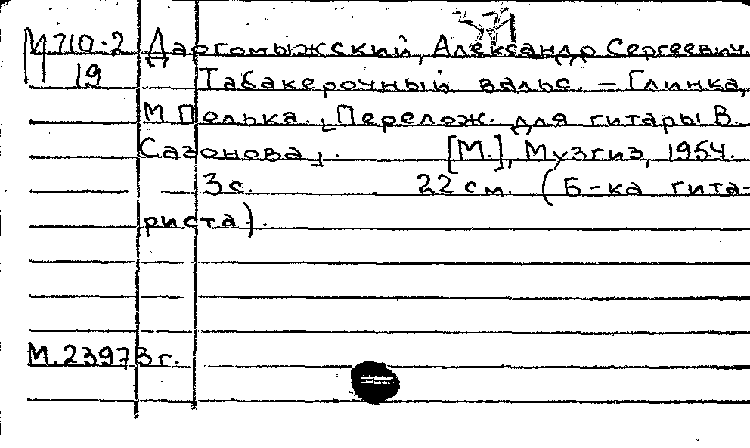 М 710-2 Даргомыжский, Александр Сергеевич.
19 Табакерочный вальс. – Глинка,
М Полька. [Перелож. для гитары В.
Сазонова]. [М.], Музгиз, 1954.
3 с. 22 см. (Б-ка гита-
риста).
М. 23973г.